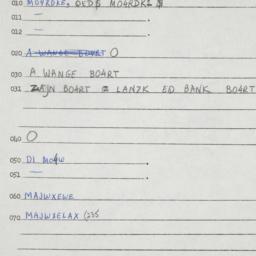 010 MO4RDKE.
011 —
012 —
020 A WANGE BOART O
030 A WANGE BOART
031 ZAJN BOART LANZK ED BANK BOART
040 O
050 DI MO4W
051 —
060 MAJWXEWE
070 MAJWXELAX